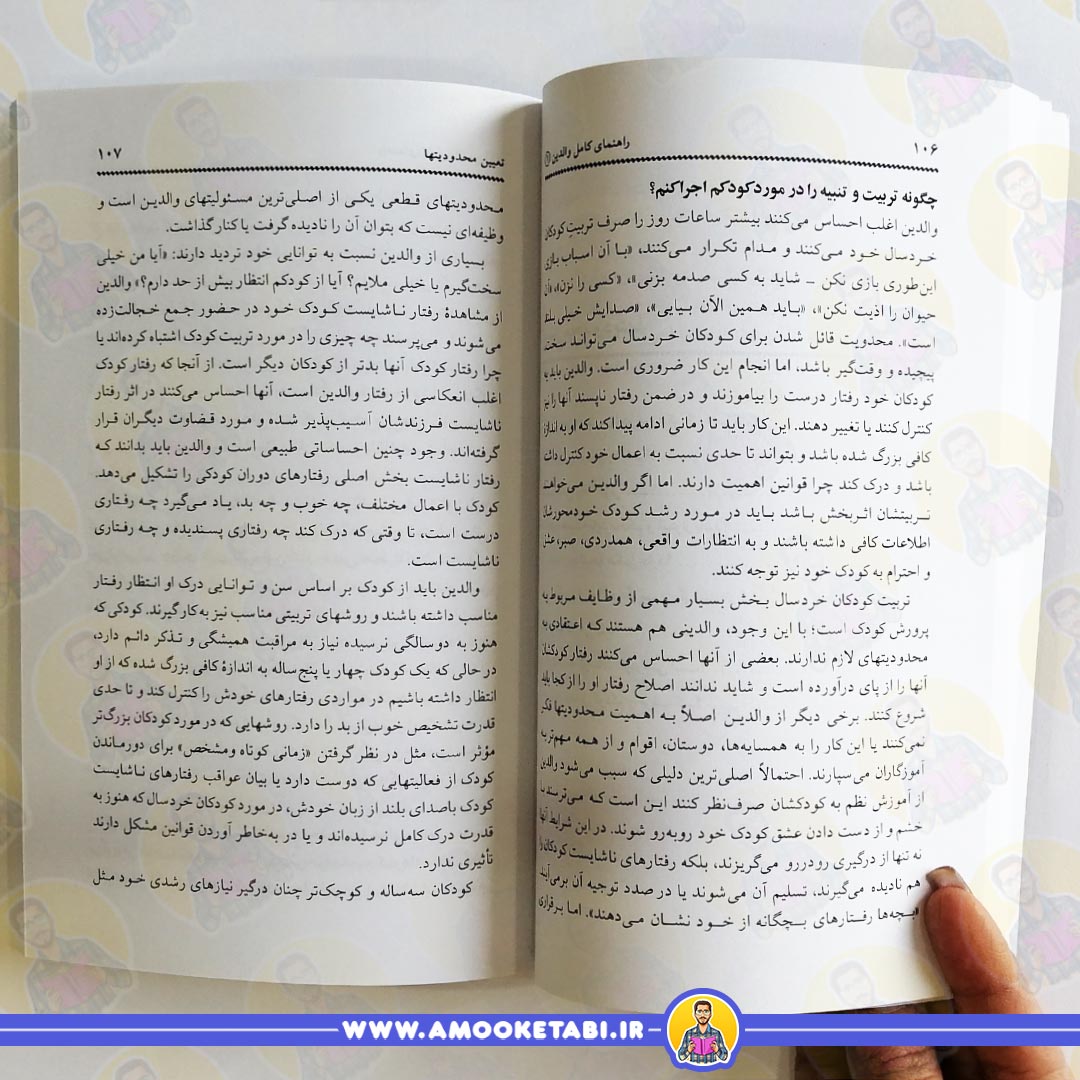 ۱۰۶
راهنمای کامل والدین
چگونه تربیت و تنبیه را در مورد کودکم اجرا کنم؟
والدین اغلب احساس می‌کنند بیشتر ساعات روز را صرف تربیتِ کودکان
خردسال خود می‌کنند و مدام تکرار می‌کنند، «با آن اسباب بازی
این‌طوری بازی نکن ـ شاید به کسی صدمه بزنی»، «کسی را نزن»، «آن
حیوان را اذیت نکن»، «باید همین الآن بیایی»، «صدایش خیلی بلند
است». محدویت قائل شدن برای کودکان خردسال می‌تواند سخت،
پیچیده و وقت‌گیر باشد، اما انجام این کار ضروری است. والدین باید به
کودکان خود رفتار درست را بیاموزند و در ضمن رفتار ناپسند آنها را نیز
کنترل کنند یا تغییر دهند. این کار باید تا زمانی ادامه پیدا کند که او به اندازهٔ
کافی بزرگ شده باشد و بتواند تا حدی نسبت به اعمال خود کنترل داشته
باشد و درک کند چرا قوانین اهمیت دارند. اما اگر والدین می‌خواهند
تربیتشان اثربخش باشد باید در مورد رشد کودک خودمحورشان
اطلاعات کافی داشته باشند و به انتظارات واقعی، همدردی، صبر، عشق
و احترام به کودک خود نیز توجه کنند.
تربیت کودکان خردسال بخش بسیار مهمی از وظایف مربوط به
پرورش کودک است؛ با این وجود، والدینی هم هستند که اعتقادی به
محدودیتهای لازم ندارند. بعضی از آنها احساس می‌کنند رفتار کودکشان
آنها را از پای درآورده است و شاید ندانند اصلاح رفتار او را از کجا باید
شروع کنند. برخی دیگر از والدین اصلاً به اهمیت محدودیتها فکر
نمی‌کنند یا این کار را به همسایه‌ها، دوستان، اقوام و از همه مهم‌تر به
آموزگاران می‌سپارند. احتمالاً اصلی‌ترین دلیلی که سبب می‌شود والدین
از آموزش نظم به کودکشان صرف‌نظر کنند این است که می‌ترسند با
خشم و از دست دادن عشق کودک خود روبه‌رو شوند. در این شرایط آنها
نه تنها از درگیری رودررو می‌گریزند، بلکه رفتارهای ناشایست کودکان را
هم نادیده می‌گیرند، تسلیم آن می‌شوند یا در صدد توجیه آن برمی‌آیند
«بچه‌ها رفتارهای بچگانه از خود نشان می‌دهند». اما برقراری
تعیین محدودیتها
۱۰۷
محدودیتهای قطعی یکی از اصلی‌ترین مسئولیتهای والدین است و
وظیفه‌ای نیست که بتوان آن را نادیده گرفت یا کنار گذاشت.
بسیاری از والدین نسبت به توانایی خود تردید دارند: «آیا من خیلی
سخت‌گیرم یا خیلی ملایم؟ آیا از کودکم انتظار بیش از حد دارم؟» والدین
از مشاهدهٔ رفتار ناشایست کودک خود در حضور جمع خجالت‌زده
می‌شوند و می‌پرسند چه چیزی را در مورد تربیت کودک اشتباه کرده‌اند یا
چرا رفتار کودک آنها بدتر از کودکان دیگر است. از آنجا که رفتار کودک
اغلب انعکاسی از رفتار والدین است، آنها احساس می‌کنند در اثر رفتار
ناشایست فرزندشان آسیب‌پذیر شده و مورد قضاوت دیگران قرار
گرفته‌اند. وجود چنین احساساتی طبیعی است و والدین باید بدانند که
رفتار ناشایست بخش اصلی رفتارهای دوران کودکی را تشکیل می‌دهد.
کودک با اعمال مختلف، چه خوب و چه بد، یاد می‌گیرد چه رفتاری
درست است، تا وقتی که درک کند چه رفتاری پسندیده و چه رفتاری
ناشایست است.
والدین باید از کودک بر اساس سن و توانایی درک او انتظار رفتار
مناسب داشته باشند و روشهای تربیتی مناسب نیز به‌کار گیرند. کودکی که
هنوز به دوسالگی نرسیده نیاز به مراقبت همیشگی و تذکر دائم دارد،
در حالی که یک کودک چهار یا پنج‌ساله به اندازهٔ کافی بزرگ شده که از او
انتظار داشته باشیم در مواردی رفتارهای خودش را کنترل کند و تا حدی
قدرت تشخیص خوب از بد را دارد. روشهایی که در مورد کودکان بزرگ‌تر
مؤثر است، مثل در نظر گرفتن «زمانی کوتاه و مشخص» برای دورماندن
کودک از فعالیتهایی که دوست دارد یا بیان عواقب رفتارهای ناشایست
کودک باصدای بلند از زبان خودش، در مورد کودکان خردسال که هنوز به
قدرت درک کامل نرسیده‌اند و یا در به‌خاطر آوردن قوانین مشکل دارند
تأثیری ندارد.
کودکان سه‌ساله و کوچک‌تر چنان درگیر نیازهای رشدی خود مثل
WWW.AMOOKETABI.IR